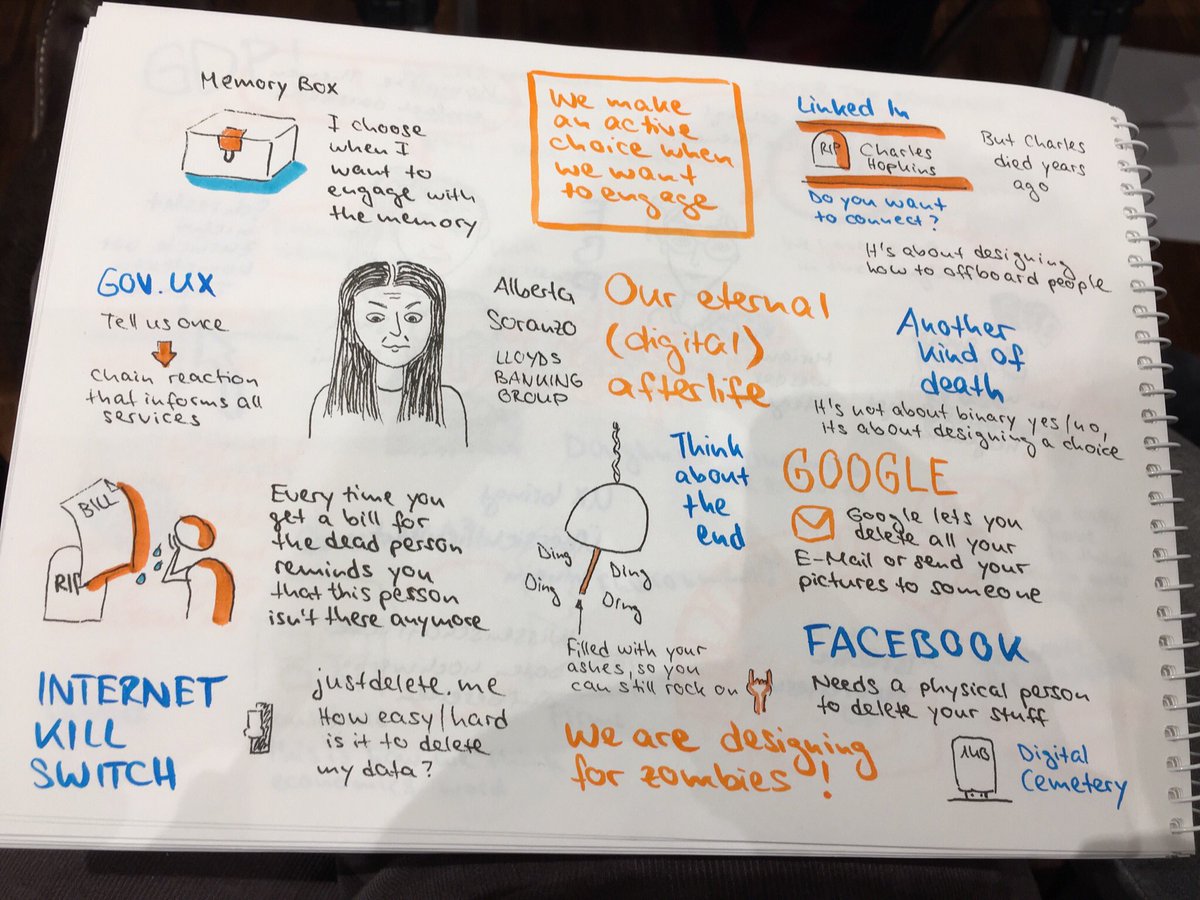 Memory Box
I choose
when I
want to
engage with
the memory
We make
an active
choice when
we want
to engage
Linked In
RIP
Charles
Hopkins
Do you want
to connect?
But Charles
died years
ago
It's about designing
how to offboard people
GOV.UX
Tell us once
chain reaction
that informs all
services
Alberta
Soranzo
LLOYDS
BANKING
GROUP
Our eternal
(digital)
afterlife
Another
kind of
death
It's not about binary yes/no,
its about designing a choice
BILL
RIP
Every time you
get a bill for
the dead person
reminds you
that this person
isn't there anymore
Ding
Ding
Ding
Ding
Filled with your
ashes, so you
can still rock on
Think
about
the
end
GOOGLE
Google lets you
delete all your
E-Mail or send your
pictures to someone
FACEBOOK
Needs a physical person
to delete your stuff
INTERNET
KILL
SWITCH
justdelete.me
How easy/hard
is it to delete
my data?
We are designing
for zombies!
Digital
Cemetery